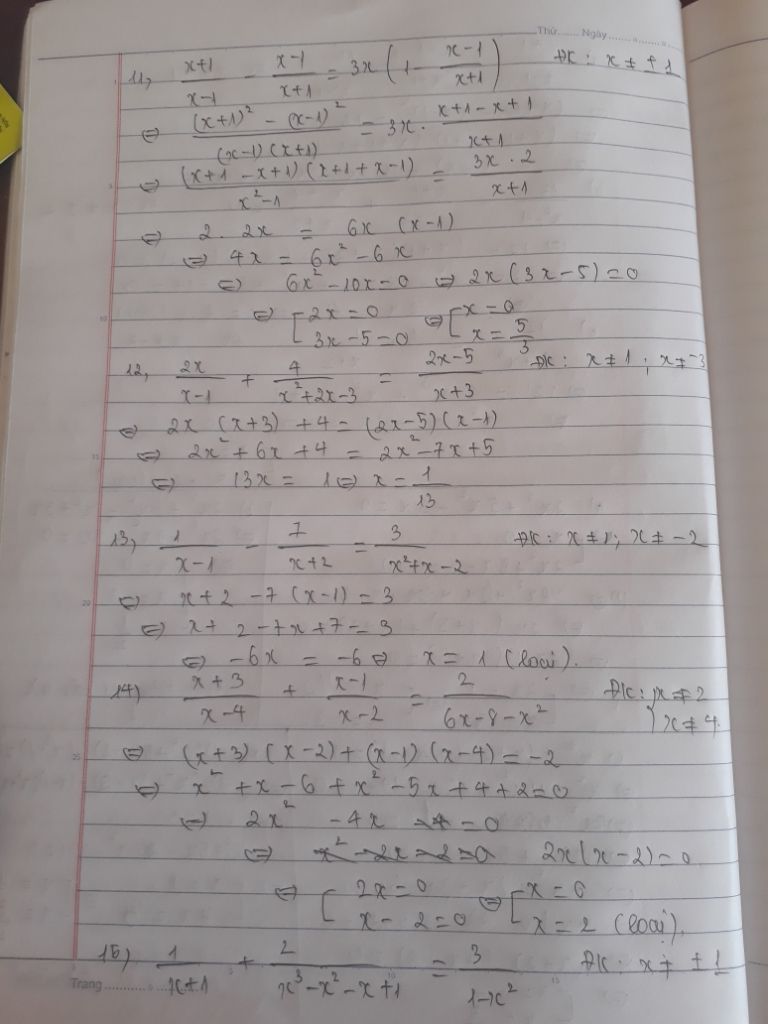 Thứ....... Ngày.................
11, (x+1)/(x-1) - (x-1)/(x+1) = 3x (1 - (x-1)/(x+1)) ĐK: x ≠ ±1
⇔ ((x+1)² - (x-1)²)/((x-1)(x+1)) = 3x · (x+1-x+1)/(x+1)
⇔ ((x+1-x+1)(x+1+x-1))/(x²-1) = (3x · 2)/(x+1)
⇔ 2 · 2x = 6x (x-1)
⇔ 4x = 6x² - 6x
⇔ 6x² - 10x = 0 ⇔ 2x (3x-5) = 0
⇔ [2x = 0 ⇔ [x = 0
3x - 5 = 0 x = 5/3
12, 2x/(x-1) + 4/(x²+2x-3) = (2x-5)/(x+3) ĐK: x ≠ 1; x ≠ -3
⇔ 2x (x+3) + 4 = (2x-5)(x-1)
⇔ 2x² + 6x + 4 = 2x² - 7x + 5
⇔ 13x = 1 ⇔ x = 1/13
13, 1/(x-1) - 7/(x+2) = 3/(x²+x-2) ĐK: x ≠ 1; x ≠ -2
⇔ x+2 - 7(x-1) = 3
⇔ x + 2 - 7x + 7 = 3
⇔ -6x = -6 ⇔ x = 1 (loại).
14) (x+3)/(x-4) + (x-1)/(x-2) = 2/(6x-8-x²) ĐK: {x ≠ 2
x ≠ 4
⇔ (x+3)(x-2) + (x-1)(x-4) = -2
⇔ x² + x - 6 + x² - 5x + 4 + 2 = 0
⇔ 2x² - 4x = 0
⇔ 2x(x-2) = 0
⇔ [2x = 0 ⇔ [x = 0
x - 2 = 0 x = 2 (loại).
15) 1/(x+1) + 2/(x³-x²-x+1) = 3/(1-x²) ĐK: x ≠ ±1
Trang............